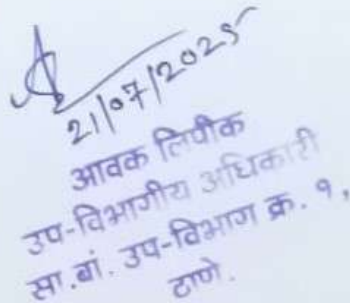 21/07/2025
आवक लिपीक
उप-विभागीय अधिकारी
सा.बां. उप-विभाग क्र. १,
ठाणे.